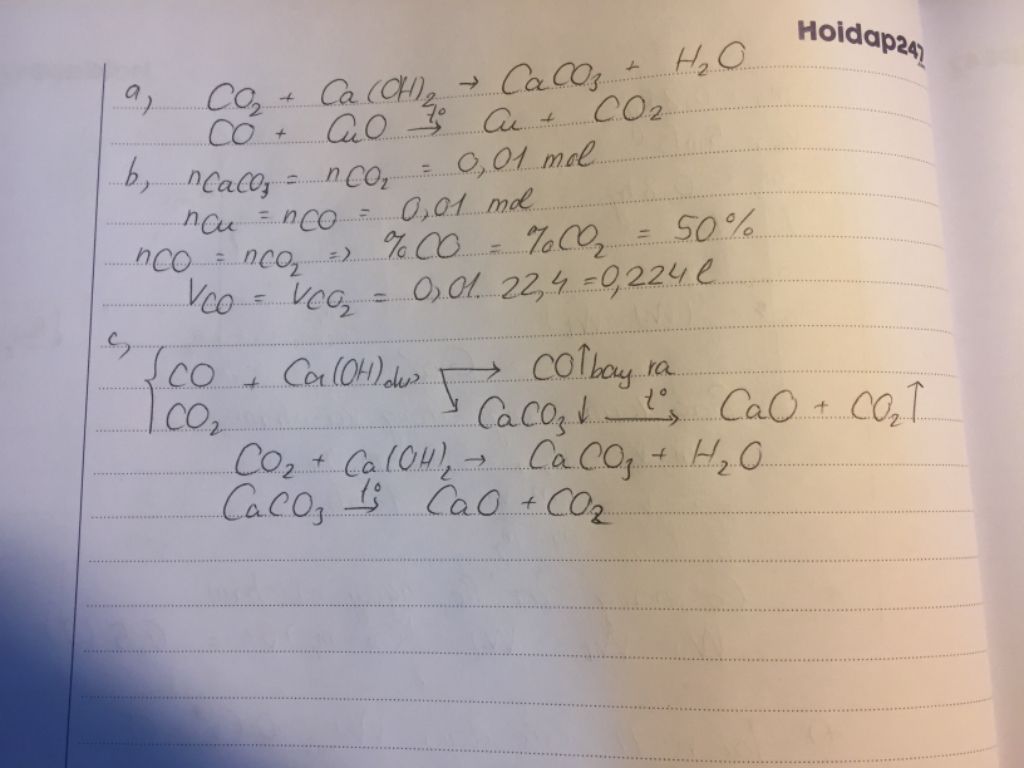 Hoidap247
a, CO₂ + Ca(OH)₂ → CaCO₃ + H₂O
CO + CuO t°→ Cu + CO₂
b, nCaCO₃ = nCO₂ = 0,01 mol
nCu = nCO = 0,01 mol
nCO = nCO₂ => %CO = %CO₂ = 50%
VCO = VCO₂ = 0,01. 22,4 = 0,224 l
c, { CO + Ca(OH) dư → CO↑ bay ra
CO₂ ↘ CaCO₃↓ t°→ CaO + CO₂↑
CO₂ + Ca(OH)₂ → CaCO₃ + H₂O
CaCO₃ t°→ CaO + CO₂